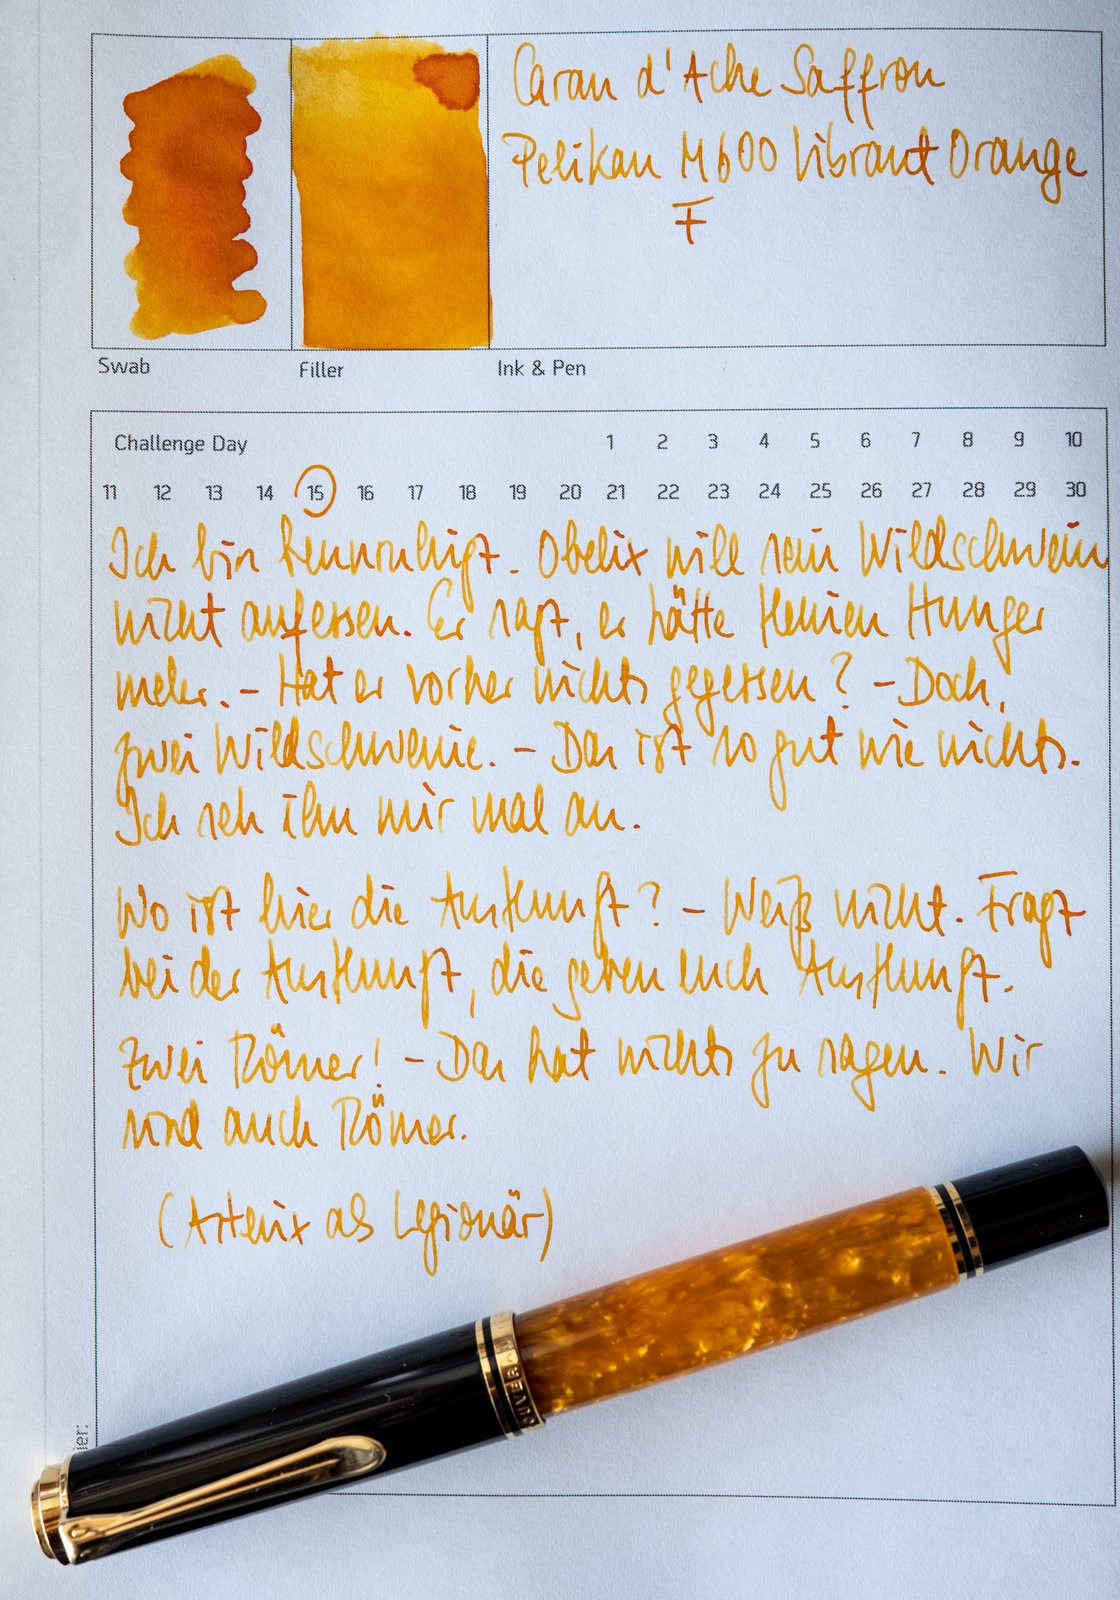 Caran d'Ache Saffron
Pelikan M600 Vibrant Orange
F
Swab
Filler
Ink & Pen
Challenge Day 1 2 3 4 5 6 7 8 9 10
11 12 13 14 15 16 17 18 19 20 21 22 23 24 25 26 27 28 29 30
Ich bin beunruhigt. Obelix will sein Wildschwein
nicht aufessen. Er sagt, er hätte keinen Hunger
mehr. – Hat er vorher nichts gegessen? – Doch,
zwei Wildschweine. – Das ist so gut wie nichts.
Ich seh ihn mir mal an.
Wo ist hier die Auskunft? – Weiß nicht. Fragt
bei der Auskunft, die geben euch Auskunft.
Zwei Römer! – Das hat nichts zu sagen. Wir
sind auch Römer.
(Asterix als Legionär)